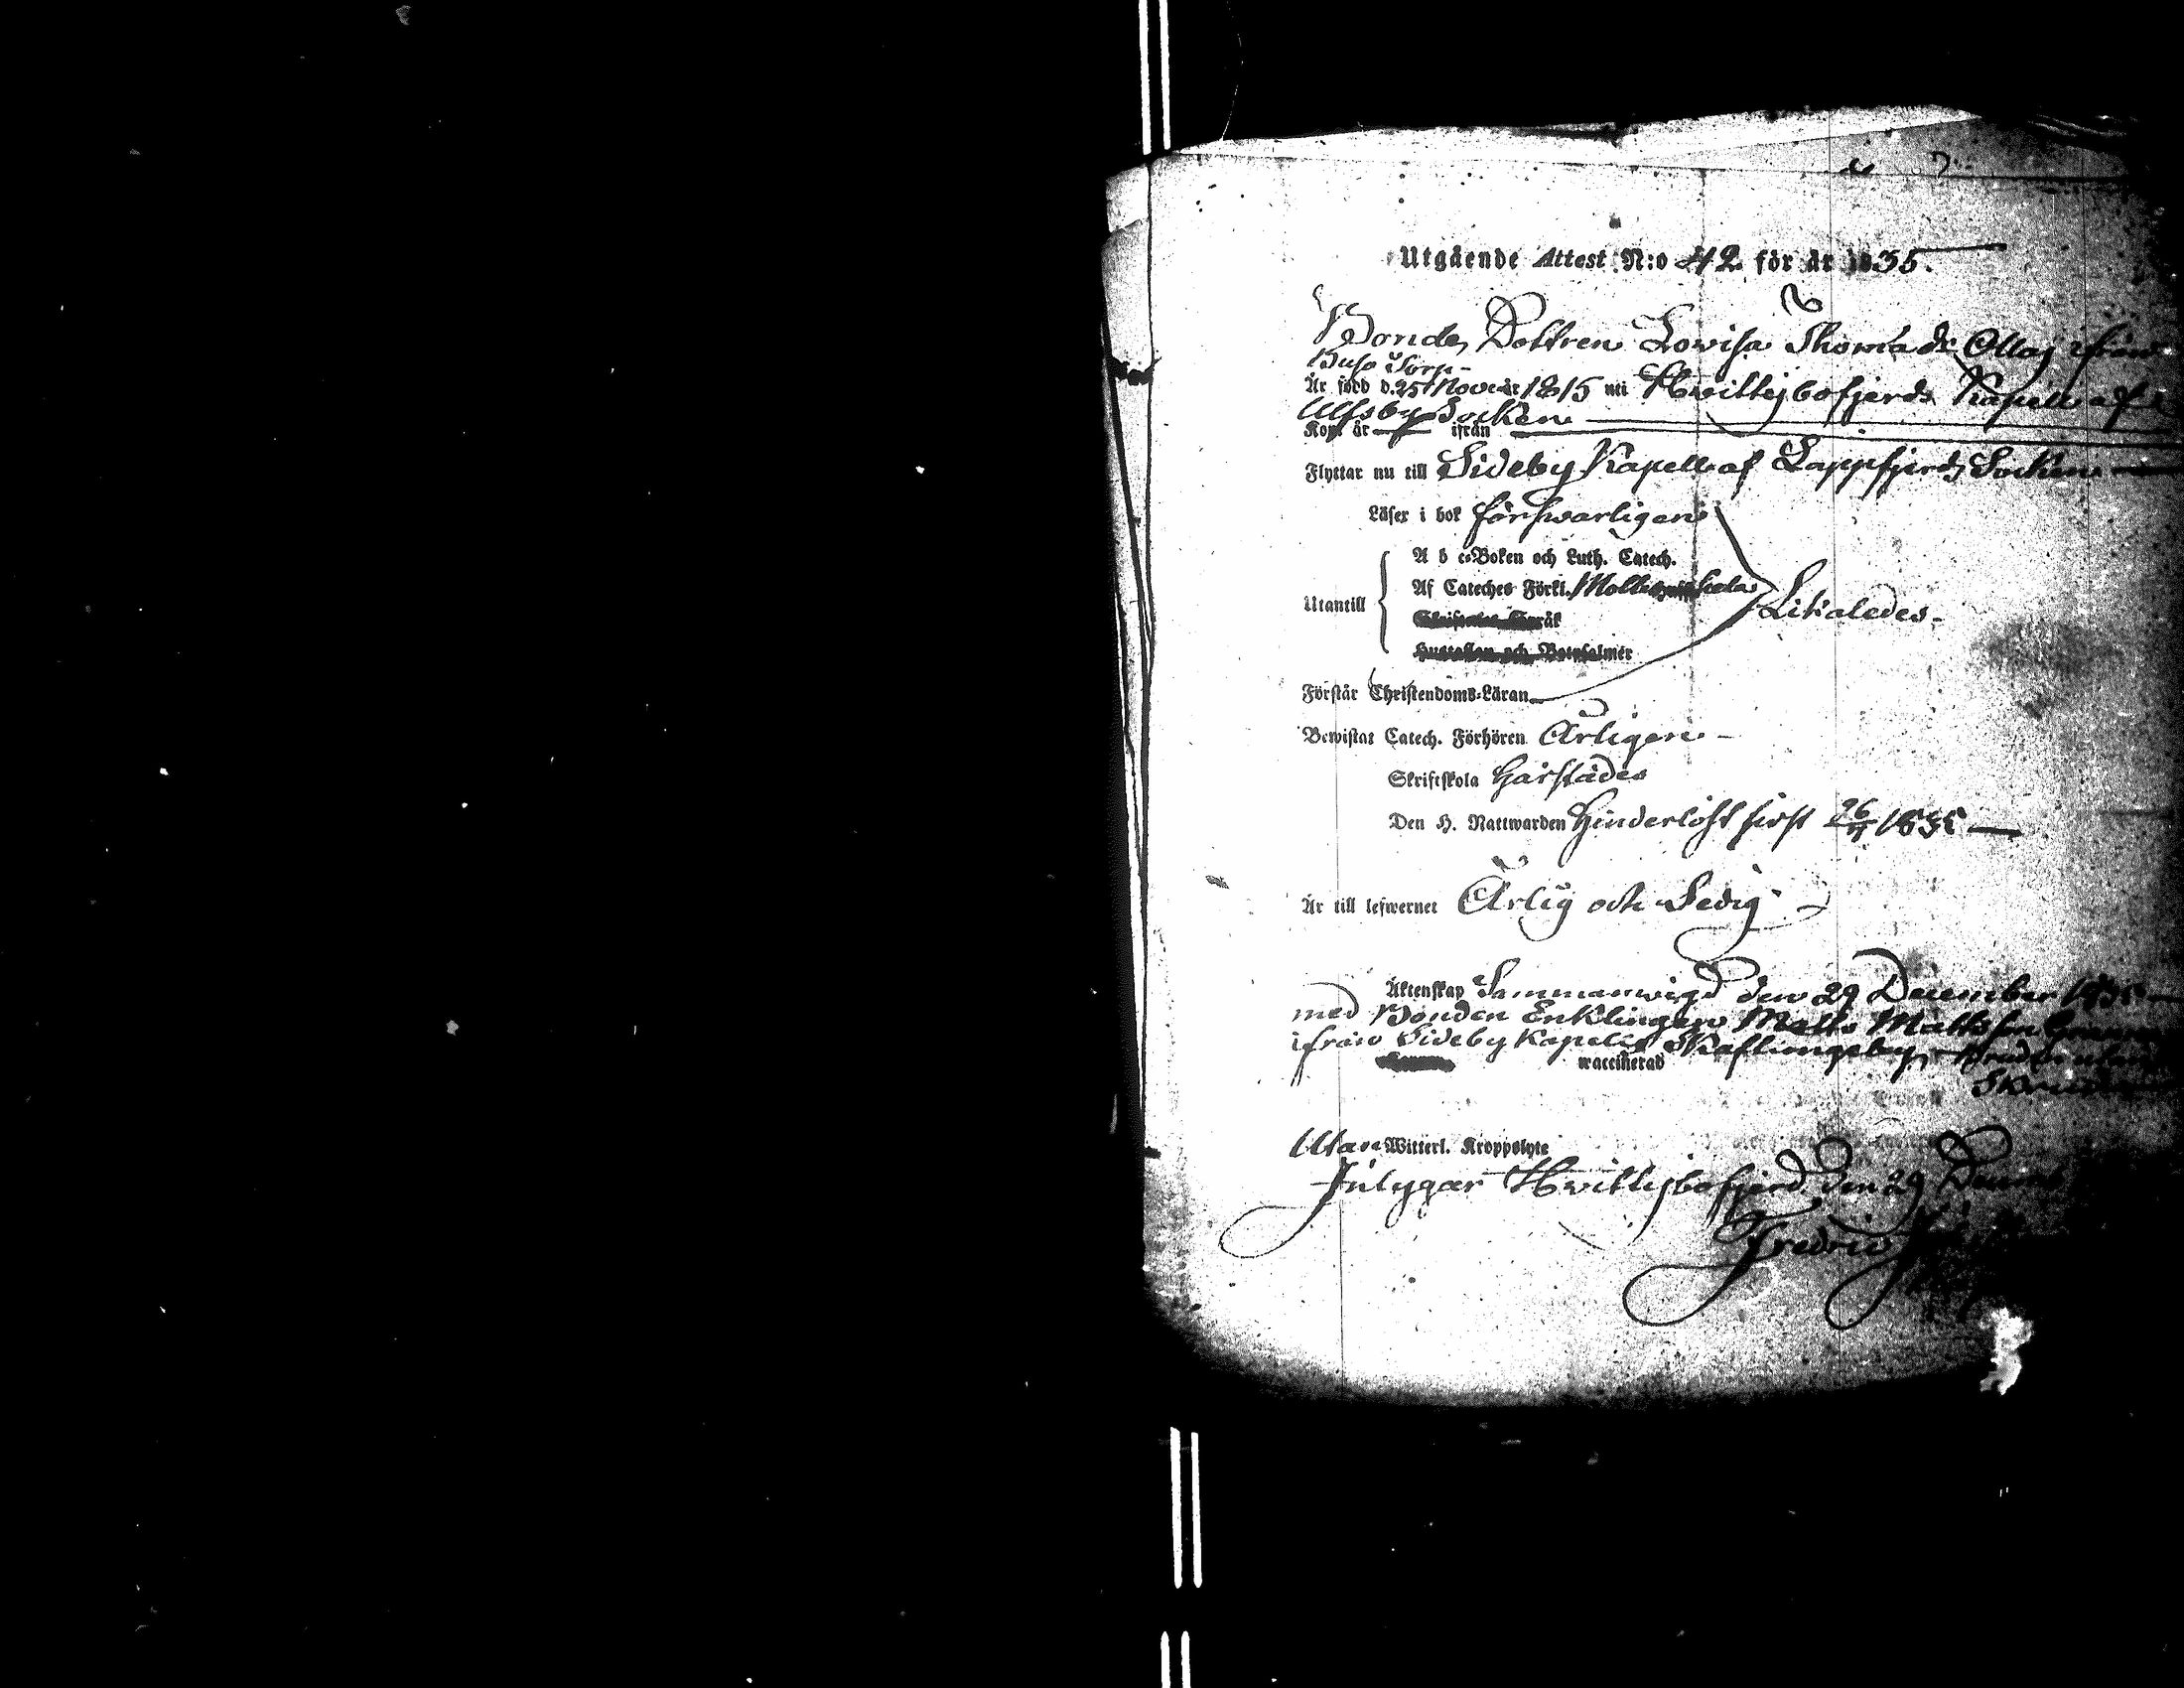 Utgående Attest N:o 42 för år 1835.
Bonde Dottren Lovisa Thomæ dr Ollas ifrån
Buso Torp
Är född d. 25 Nov år 1815 uti Hvittisbofjerds Kapell af
Ulfsby Socken
Kom år ifrån
Flyttar nu till Sideby Kapell af Lappfjerds Socken
Läser i bok försvarligen
A b c-Boken och Luth. Catech.
Af Cateches Förkl.
Utantill
Likaledes.
Språk
Hustaflan och Botpsalmer
Förstår Christendoms-Läran
Bewistat Catech. Förhören Årligen
Skriftskola härstädes
Den H. Nattwarden Hinderlöst sist 26
Är till lefwernet Ärlig och Ledig
Äktenskap Sammanvigd den 29 December
med Bonden Enklingen Matts Mattsson
ifrån Sideby Kapell Skaftungeby
waccinerad
Utan Witterl. Kroppslyte
Intygar Hvittisbofjerd den 29
Fredric